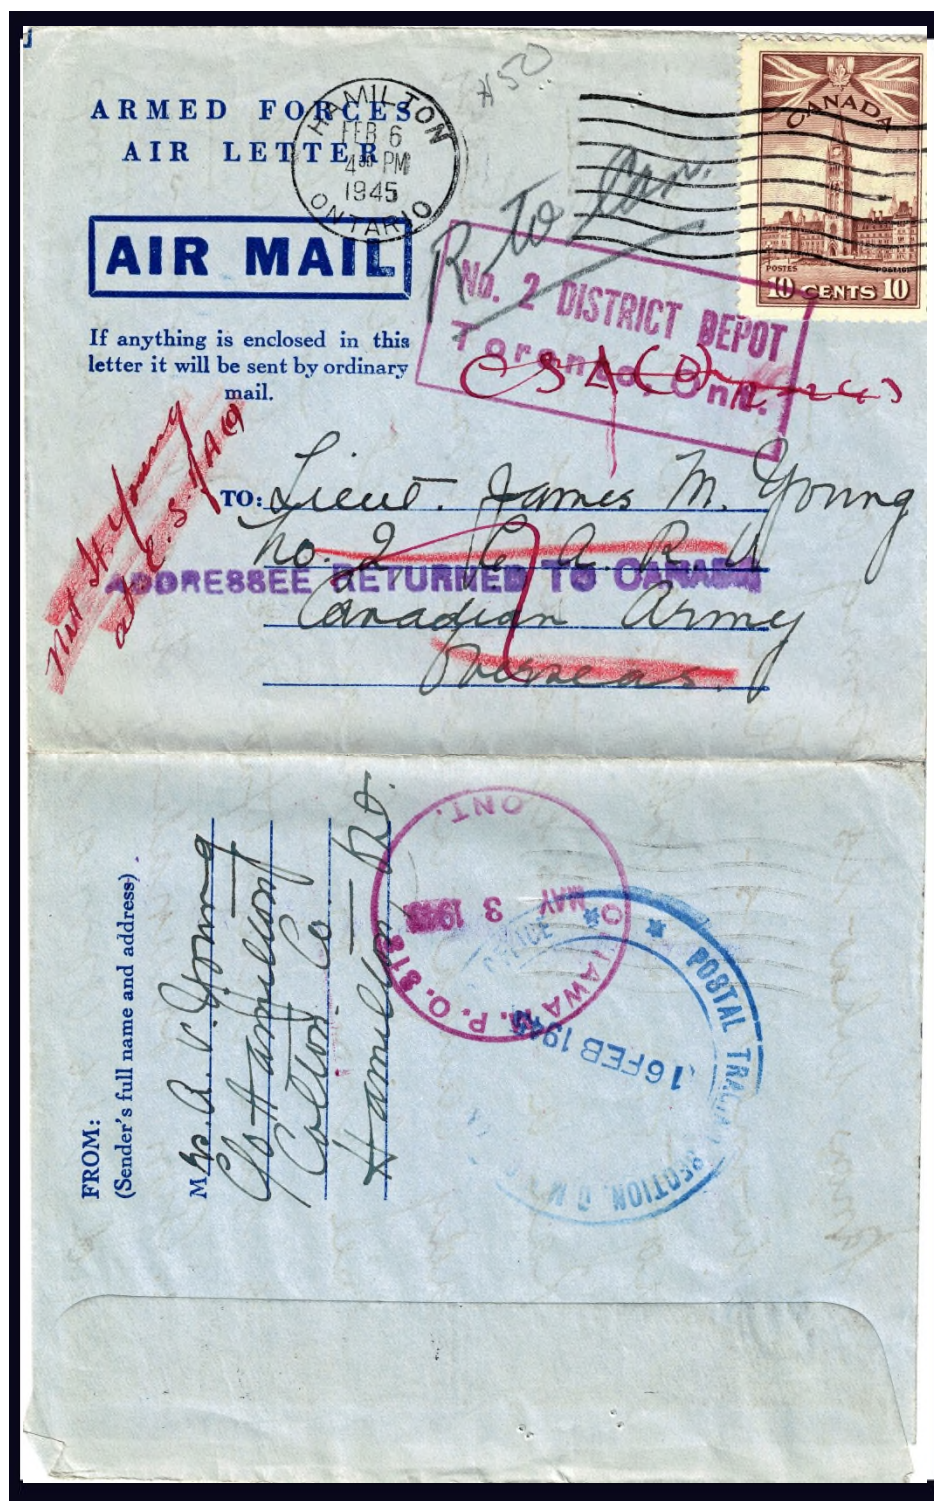 ARMED FORCES
AIR LETTER
HAMILTON
FEB 6
4 30 PM
1945
ONTARIO
#50
CANADA
POSTES POSTAGE
10 CENTS 10
AIR MAIL
R to Can.
No. 2 DISTRICT DEPOT
Toronto, Ont.
If anything is enclosed in this
letter it will be sent by ordinary
mail.
Not H Young
at
TO: Lieut. James M. Young
No. 2 C A R U
ADDRESSEE RETURNED TO CANADA
Canadian Army
Overseas.
FROM:
(Sender's full name and address)
Mrs. A. V. Young
c/o Hamilton
Cotton Co
Hamilton Ont.
OTTAWA ONT.
M.P.O. 318
MAY 3 1945
POSTAL TRACING SECTION
16 FEB 1945